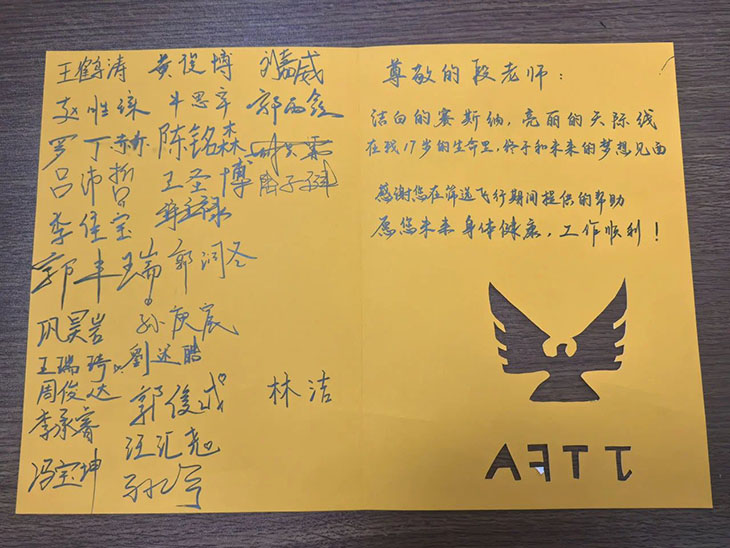 王鹤涛 黄俊博 刘嘉威
赵胜臻 牛思宇 郭丙鑫
罗丁赫 陈铭森
吕沛哲 王圣博
李佳宝
郭丰瑞 郭润冬
巩昊岩 孙庚宸
王瑞琦 劉述皓
周俊达 郭俊成 林洁
李承睿 汪汇尧
冯宝坤
尊敬的段老师：
洁白的赛斯纳，亮丽的天际线
在我17岁的生命里，终于和未来的梦想见面
感谢您在筛选飞行期间提供的帮助
愿您未来身体健康，工作顺利！
AFTJ